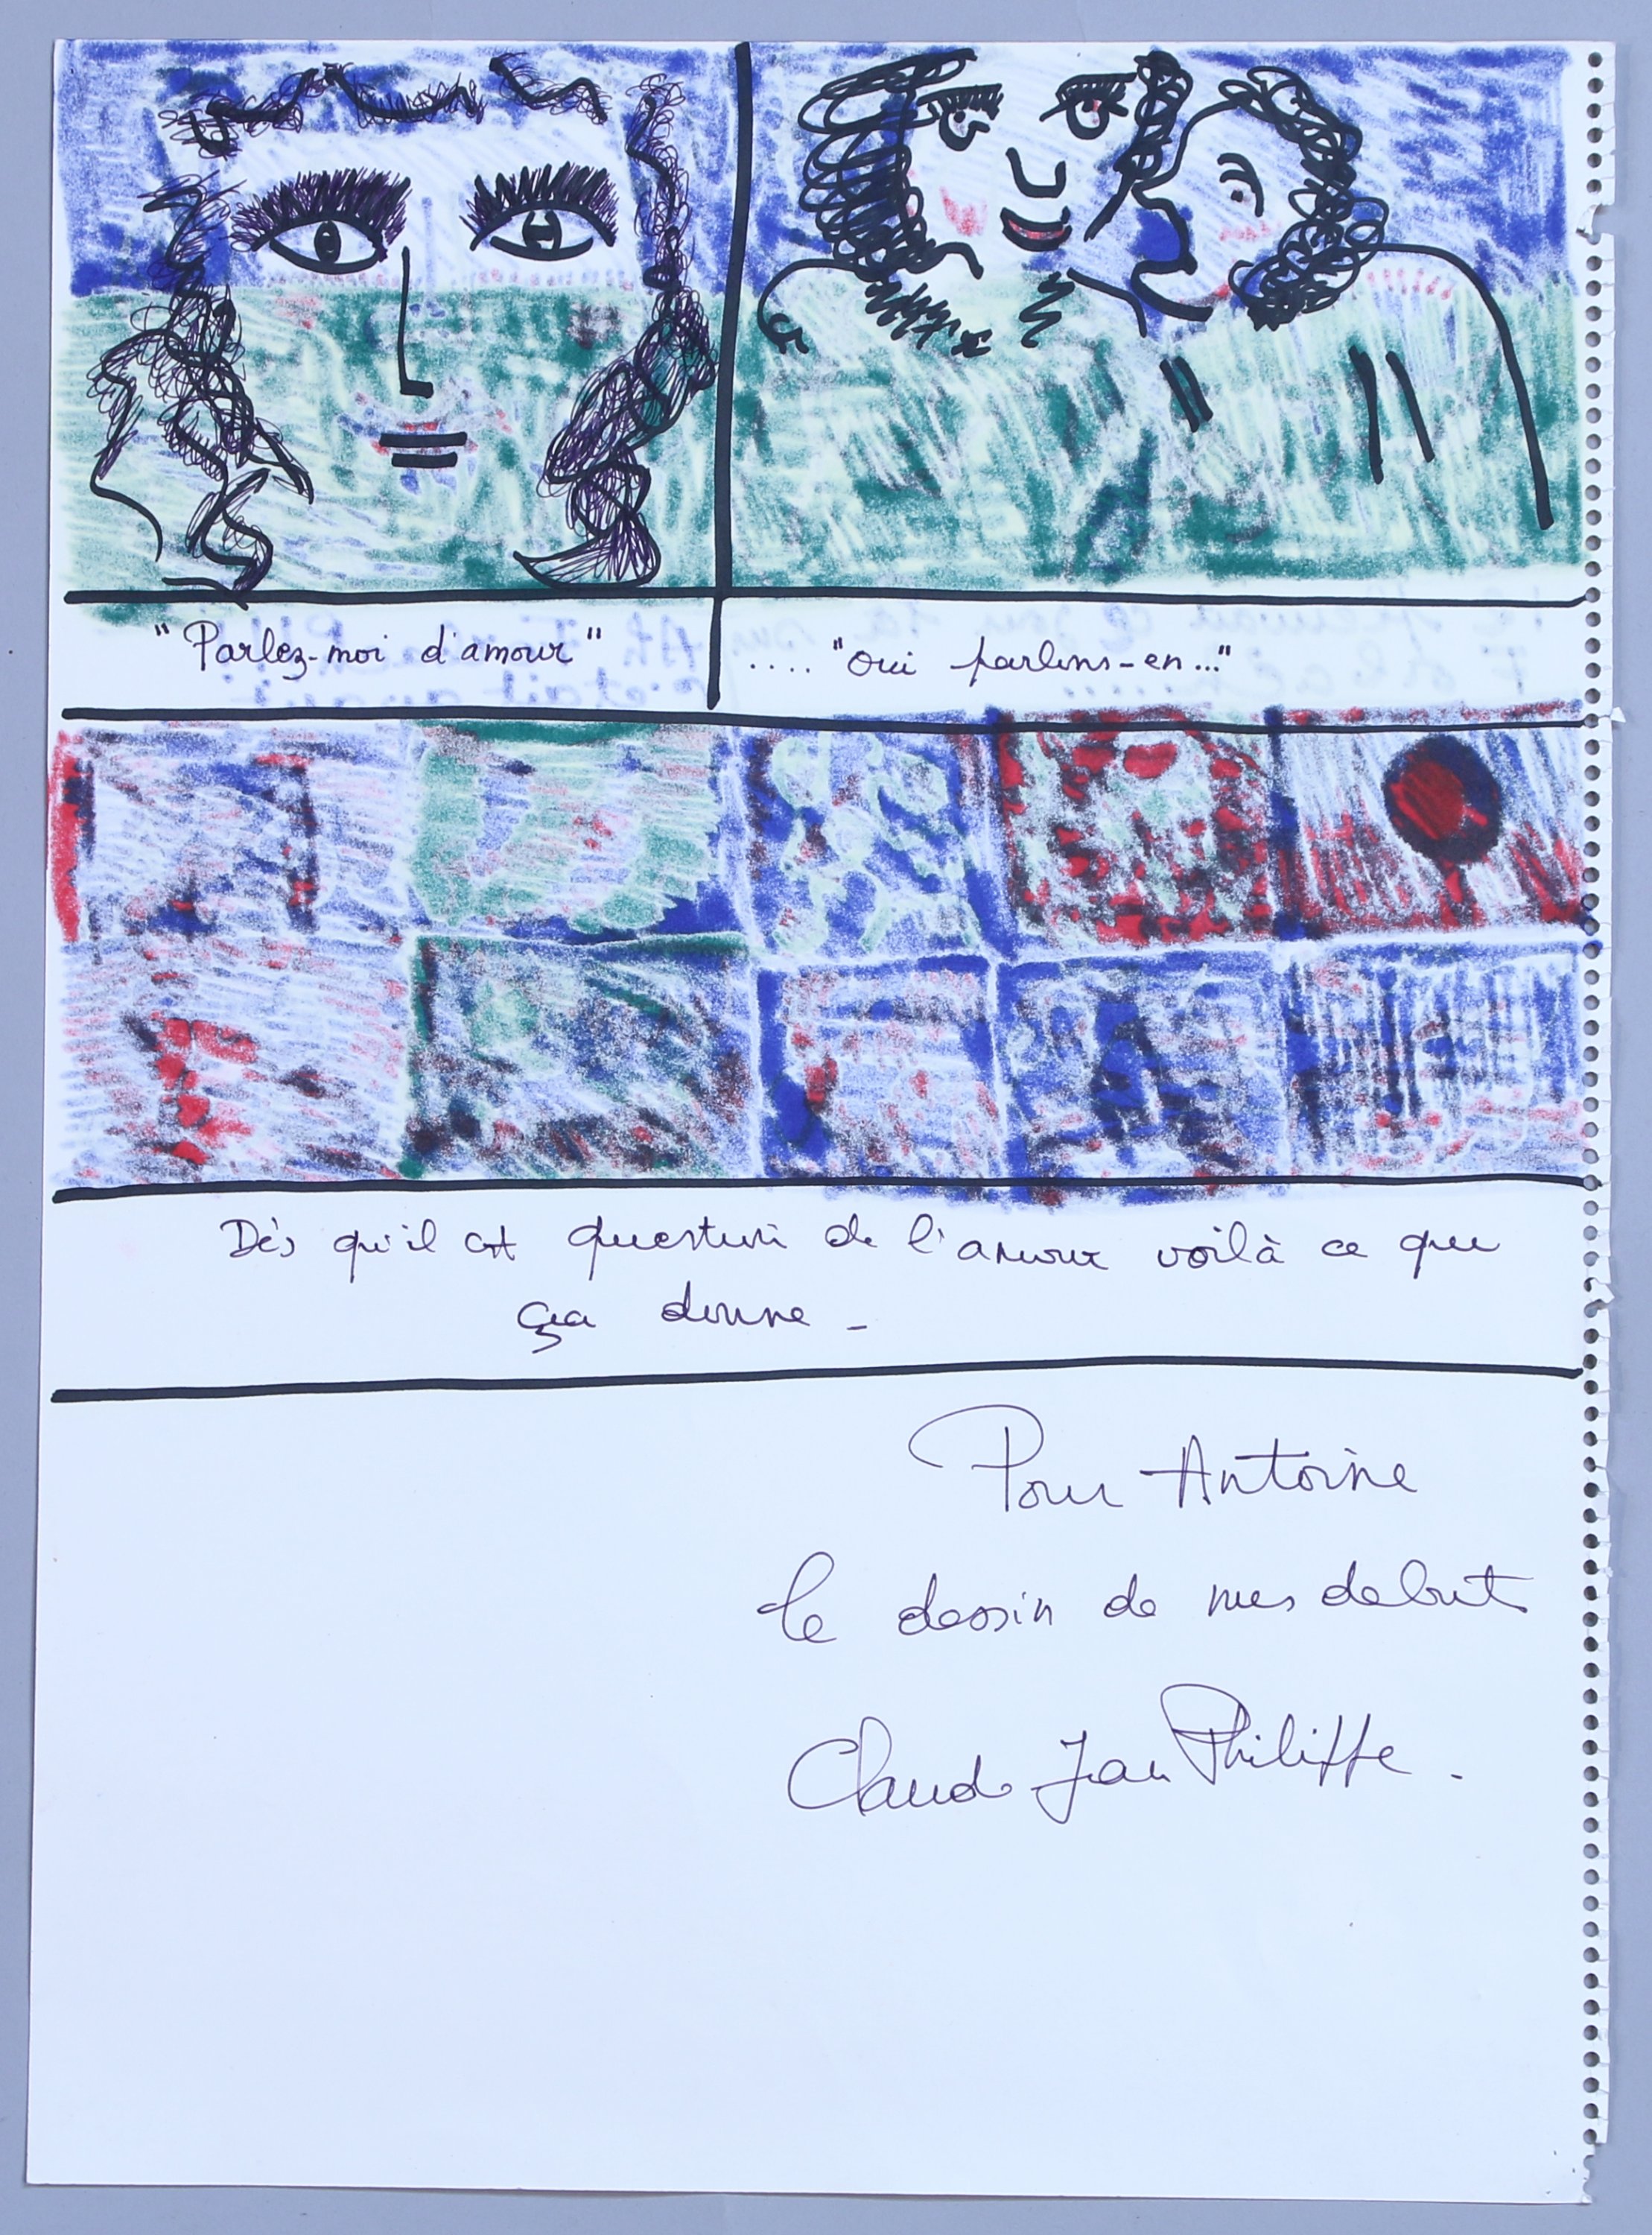 "Parlez-moi d'amour"
.... "oui parlons-en..."
Dès qu'il est question de l'amour voilà ce que
ça donne -
Pour Antoine
le dessin de mes debuts
Claude Jean Philippe.